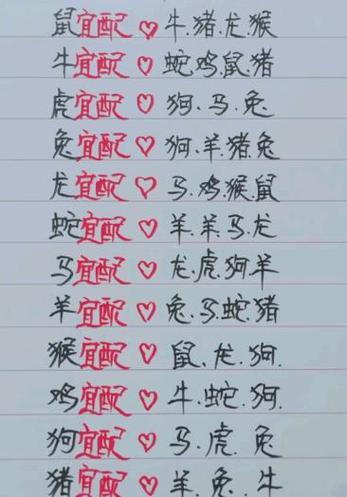 鼠宜配♡牛.猪.龙.猴
牛宜配♡蛇鸡.鼠.猪
虎宜配♡狗、马.兔
兔宜配♡狗.羊.猪兔
龙宜配♡马.鸡猴鼠
蛇宜配♡羊.羊.马.龙
马宜配♡龙.虎.狗羊
羊宜配♡兔.马.蛇猪
猴宜配♡鼠、龙.狗.
鸡宜配♡牛.蛇.狗.
狗宜配♡马.虎.兔
猪宜配♡羊.兔.牛